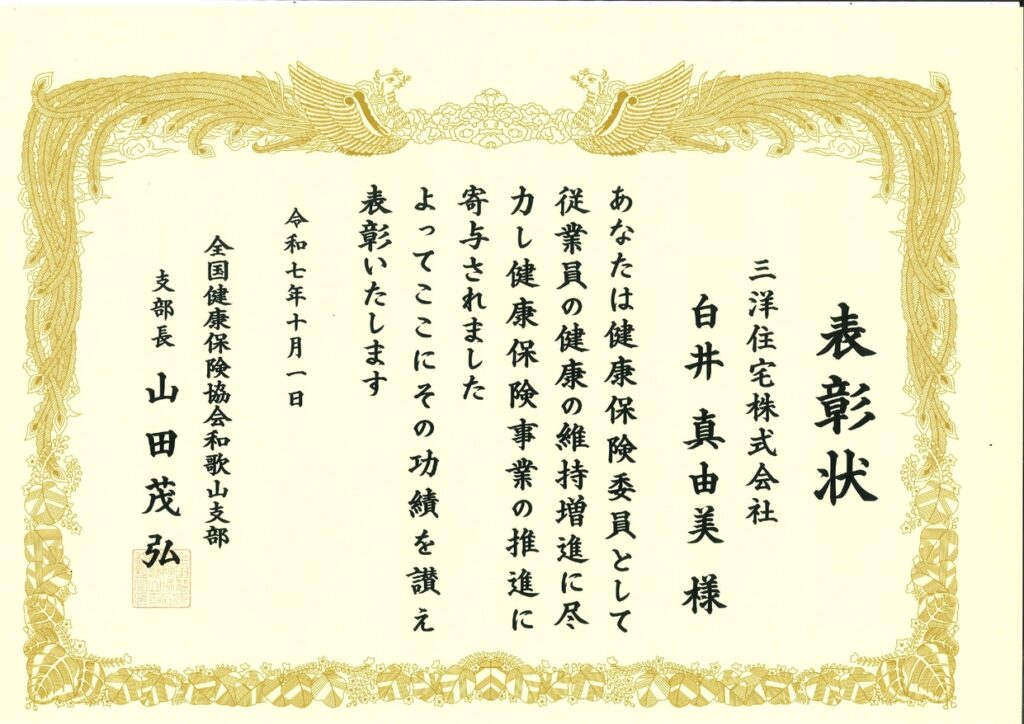 表彰状
三洋住宅株式会社
白井 真由美 様
あなたは健康保険委員として
従業員の健康の維持増進に尽
力し健康保険事業の推進に
寄与されました
よってここにその功績を讃え
表彰いたします
令和七年十月一日
全国健康保険協会和歌山支部
支部長 山田茂弘